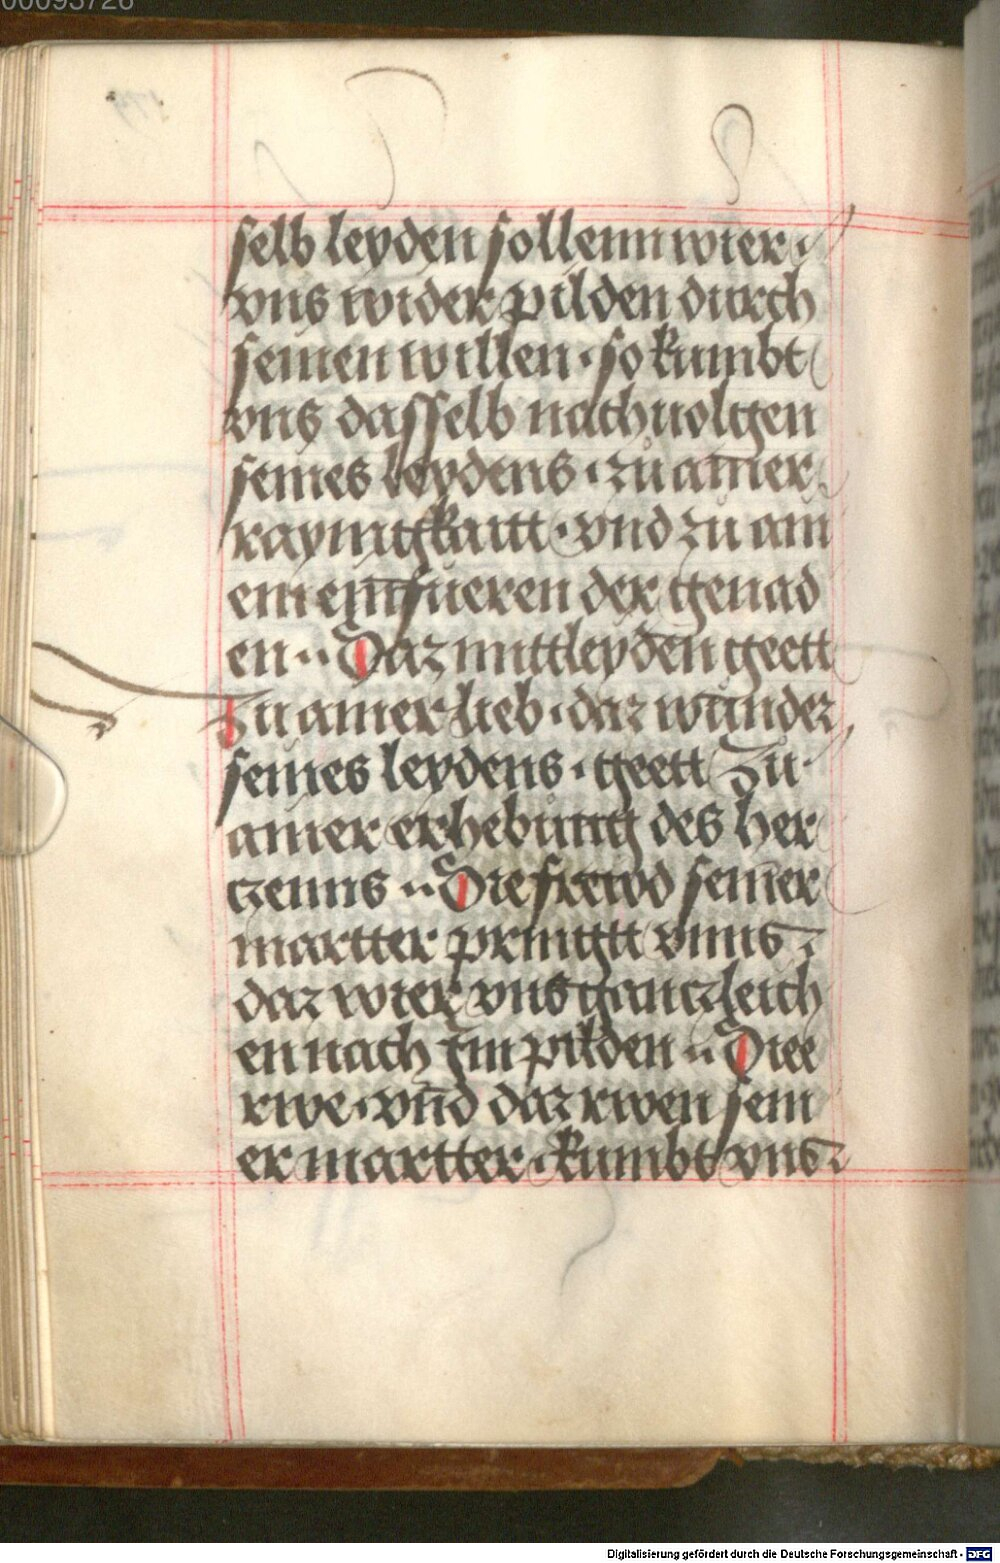 00093726
selb leyden sollenn wier
vns wider pilden durch
seinen willen · so kumbt
vns dasselb nachuolgen
seines leydens · zů ainer
raynigkaitt · vnd zu ain
em einfüeren der genad
en ·· Daz mittleyden geett
Zu ainer lieb · daz wunder
seines leydens · geett Zu
ainer erhebůng des her
czenns ·· Die frewd seiner
martter pringtt vnns
daz wier vns ganczleich
en nach Im pilden ·· Diee
rwe · vnd daz rwen sein
er martter · kumbt vns
Digitalisierung gefördert durch die Deutsche Forschungsgemeinschaft - DFG